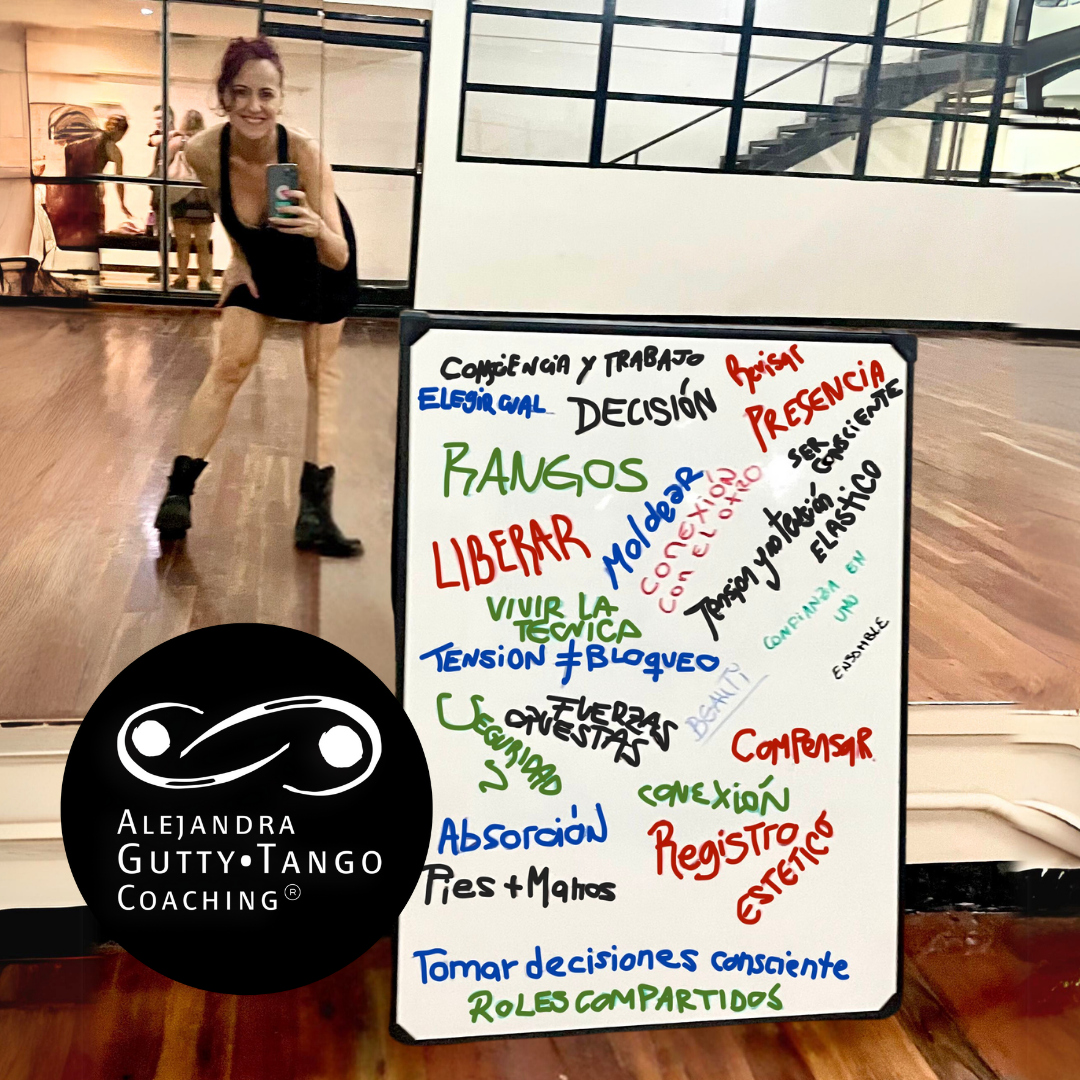 CONCIENCIA Y TRABAJO
Revisar
ELEGIR CUAL
DECISIÓN
PRESENCIA
SER
CONSCIENTE
RANGOS
Moldear
CONEXIÓN
CON EL OTRO
LIBERAR
Tension y no tensión
ELASTICO
VIVIR LA
TECNICA
CONFIANZA EN
UNO
ENSAMBLE
TENSION ≠ BLOQUEO
BEAUTY
SEGURIDAD
FUERZAS
OPUESTAS
COMPENSAR
CONEXIÓN
Absorción
Registro
ESTETICO
Pies + Manos
Tomar decisiones consciente
ROLES COMPARTIDOS
ALEJANDRA
GUTTY•TANGO
COACHING®